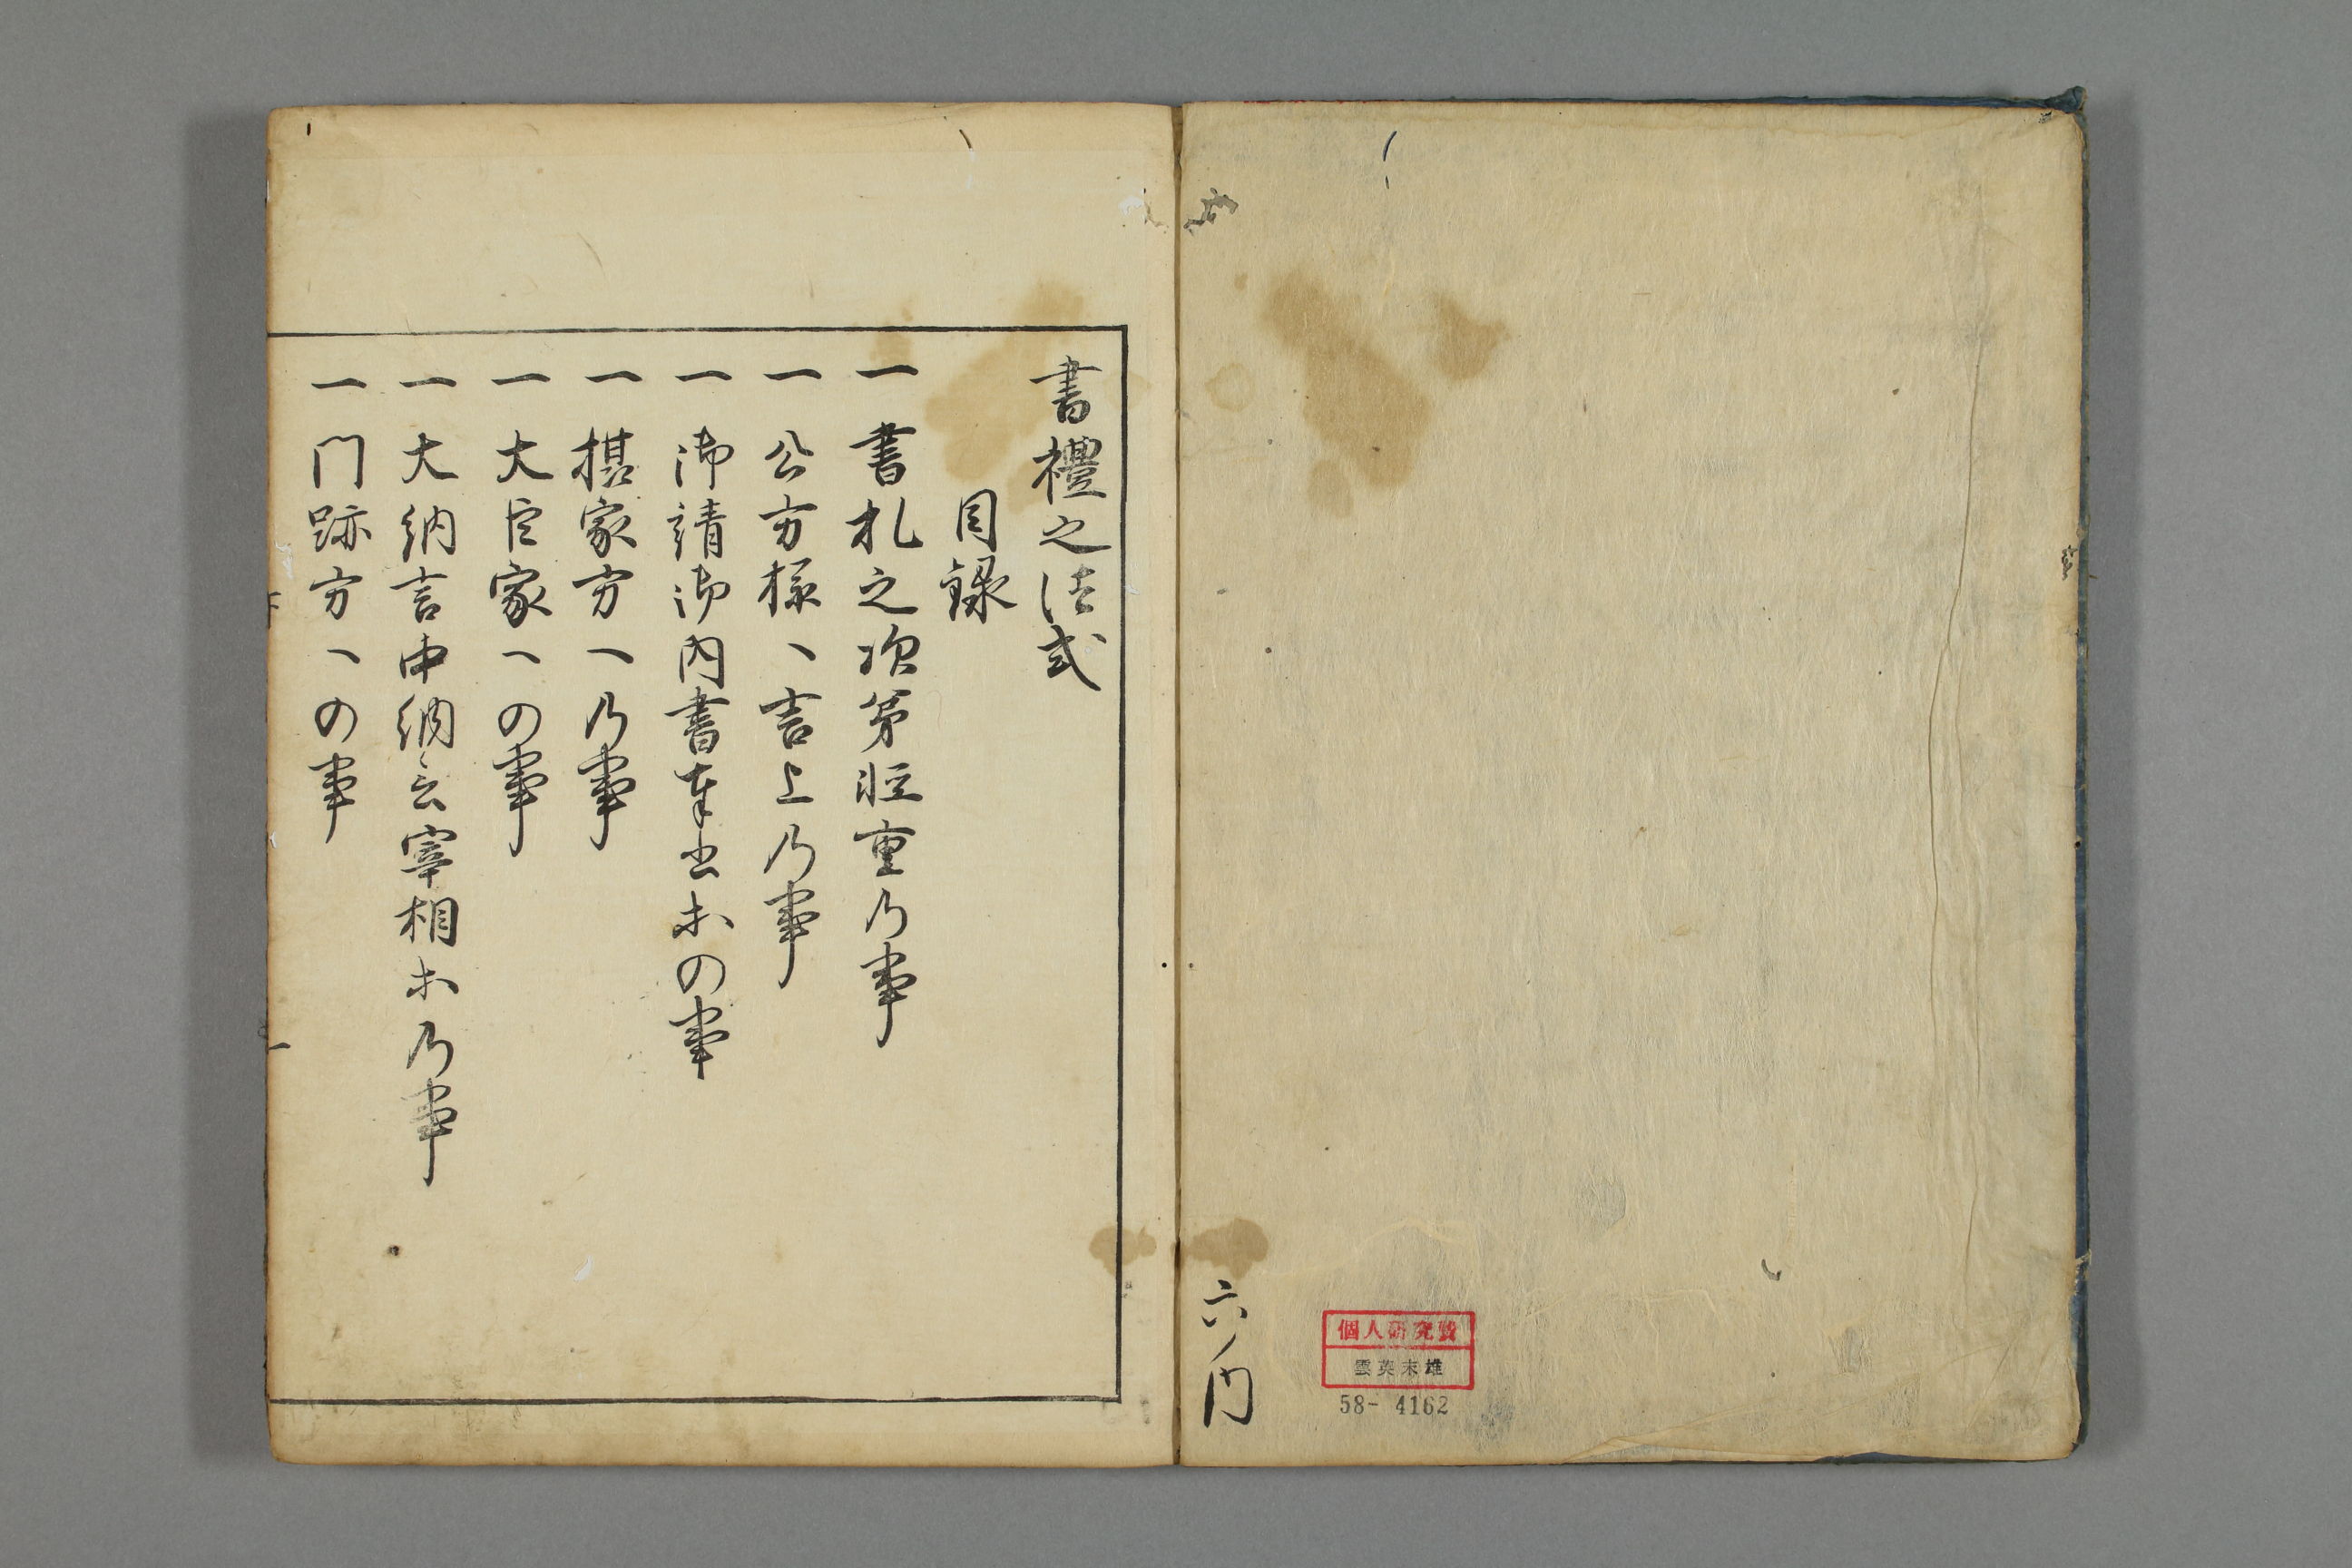 六ノ内
個人研究費
雲英末雄
58- 4162
書禮之法式
目録
一 書札之次第軽重乃事
一 公方様へ言上乃事
一 御請御内書奉書等の事
一 摂家方へ乃事
一 大臣家への事
一 大納言中納言宰相等乃事
一 門跡方への事